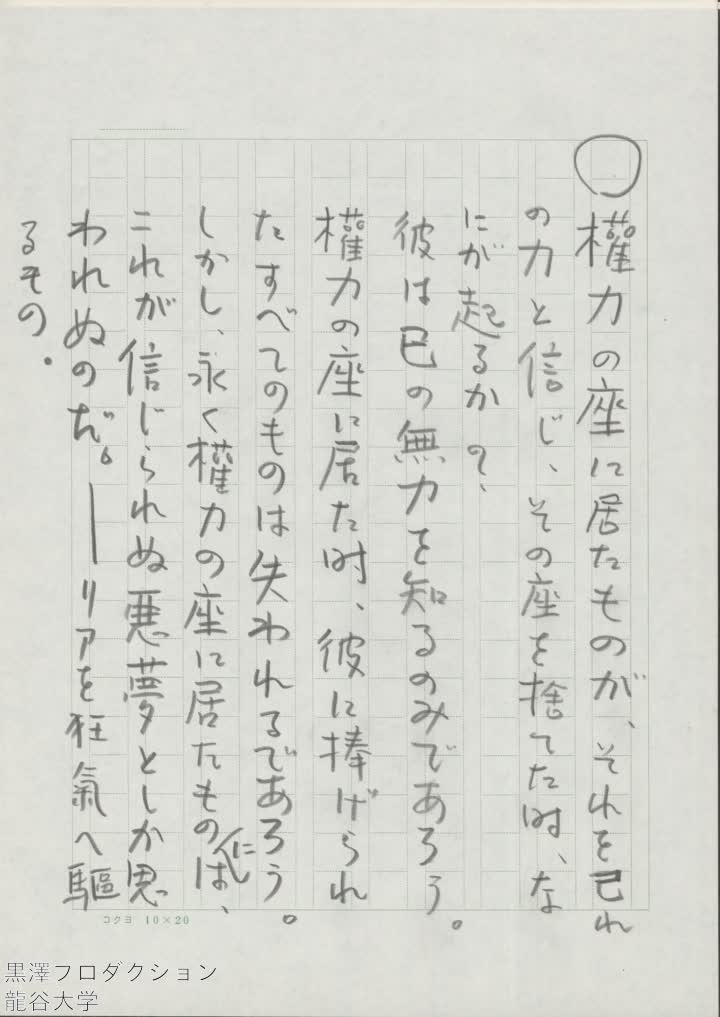 ○ 權力の座に居たものが、それを己れ
の力と信じ、その座を捨てた時、な
にが起るか?、
彼は己の無力を知るのみであろう。
權力の座に居た時、彼に捧げられ
たすべてのものは失われるであろう。
しかし、永く權力の座に居たものには、
これが信じられぬ悪夢としか思
われぬのだ。——リアを狂氣へ驅
るもの。
コクヨ 10×20
黒澤プロダクション
龍谷大学